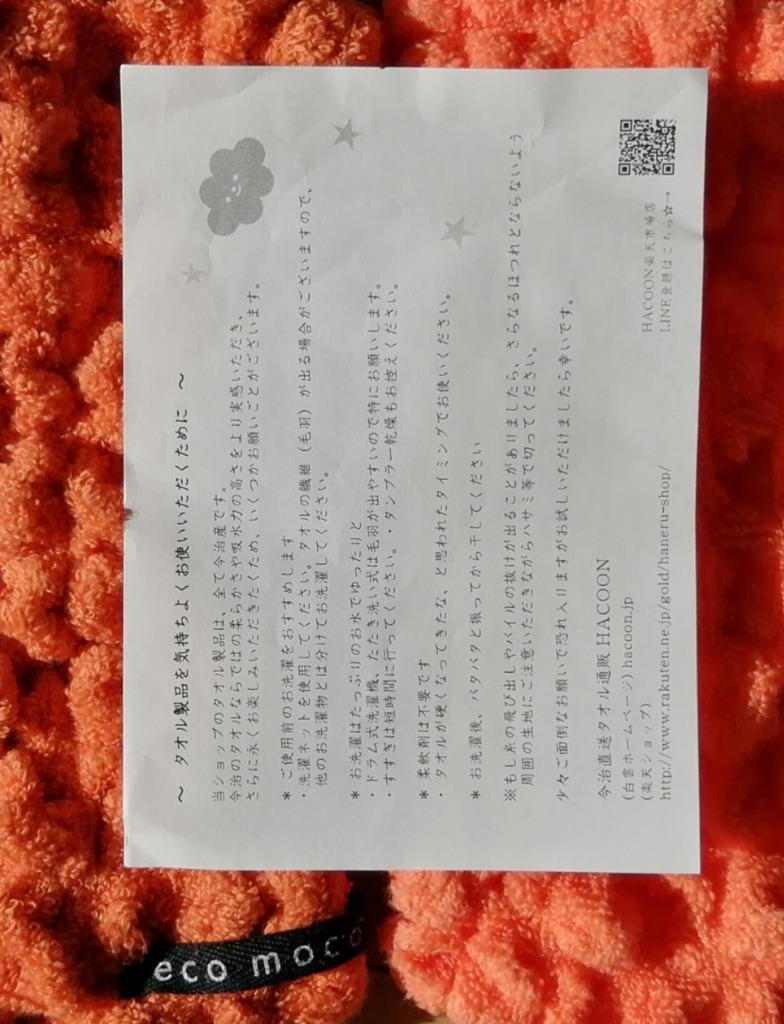 ～ タオル製品を気持ちよくお使いいただくために ～
当ショップのタオル製品は、全て今治産です。
今治のタオルならではの柔らかさや吸水力の高さをより実感いただき、
さらに永くお楽しみいただきたくため、いくつかお願いごとがございます。
* ご使用前のお洗濯をおすすめします
・洗濯ネットを使用してください。タオルの繊維（毛羽）が出る場合がございますので、
他のお洗濯物とは分けてお洗濯してください。
* お洗濯はたっぷりのお水でゆったりと
・ドラム式洗濯機、たたき洗い式は毛羽が出やすいので特にお願いします。
・すすぎは短時間に行ってください。・タンブラー乾燥もお控えください。
* 柔軟剤は不要です
・タオルが硬くなってきたな、と思われたタイミングでお使いください。
* お洗濯後、パタパタと振ってから干してください
※もし糸の飛び出しやパイルの抜けが出ることがありましたら、さらなるほつれとならないよう
周囲の生地にご注意いただきながらハサミ等で切ってください。
少々ご面倒なお願いで恐れ入りますがお試しいただけましたら幸いです。
今治直送タオル通販 HACOON
(白雲ホームページ) hacoon.jp
(楽天ショップ)
http://www.rakuten.ne.jp/gold/haneru-shop/
HACOON楽天市場店
LINE登録はこちら☆→
eco moco